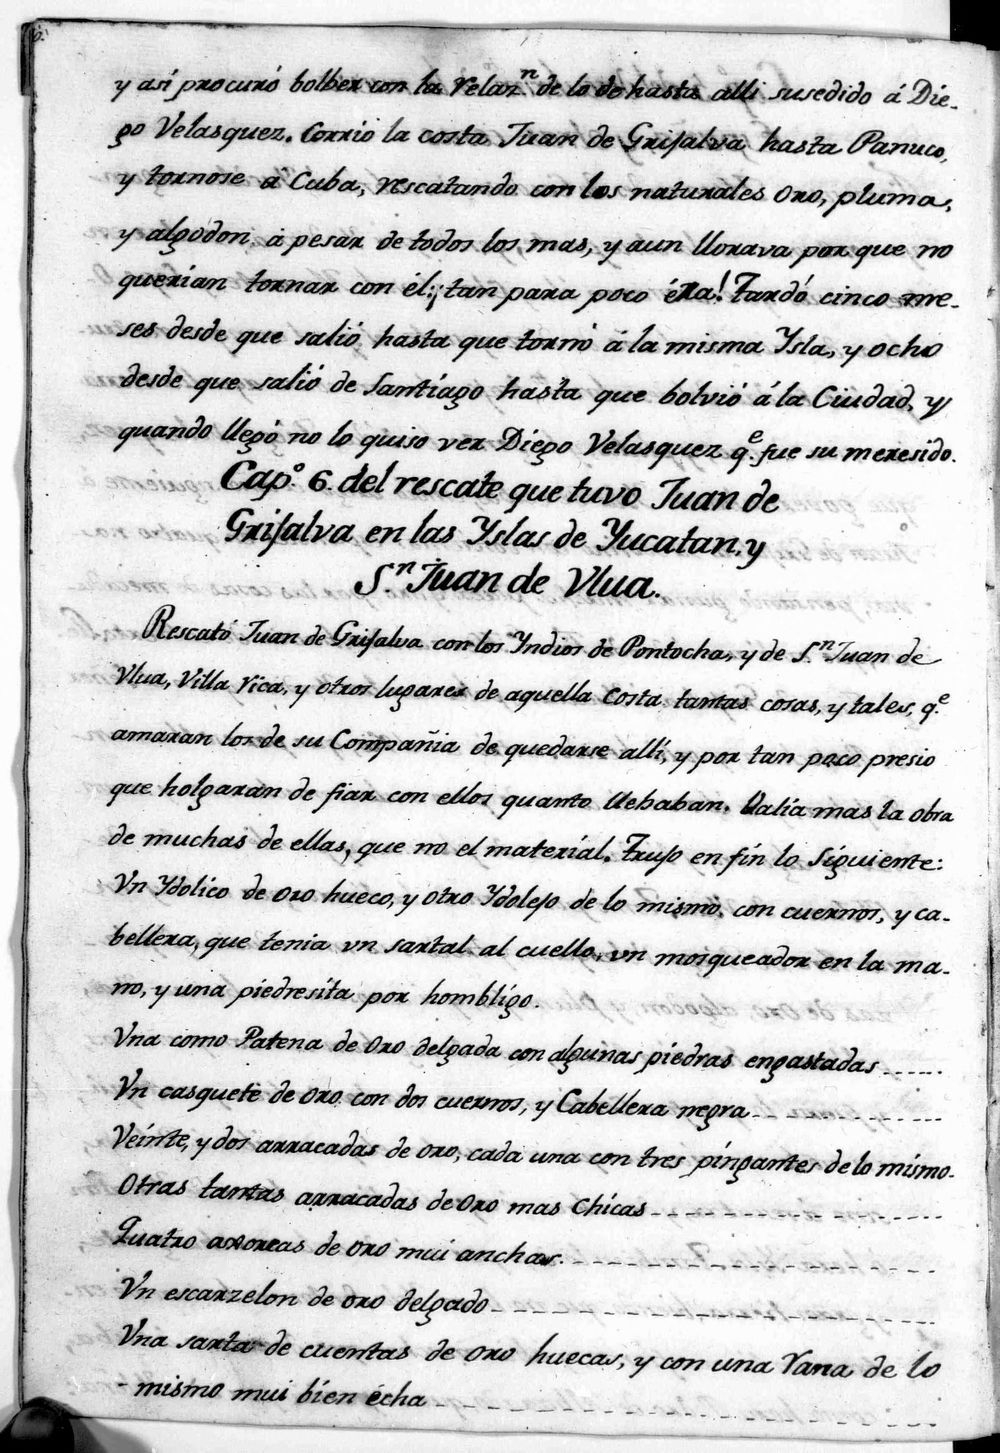 y así procuró bolber con la relaz.n de lo de hasta alli susedido á Die-
go Velasquez. Corrio la costa Juan de Grijalva hasta Panuco,
y tornose á Cuba, rescatando con los naturales oro, pluma,
y algodon á pesar de todos los mas, y aun llorava por que no
querian tornar con él: ¡tan para poco éra! Tardó cinco me-
ses desde que salió hasta que tornó á la misma Ysla, y ocho
desde que salió de Santiago hasta que bolvió á la Ciudad, y
quando llegó no lo quiso ver Diego Velasquez q.e fue su meresido.
Cap.o 6. del rescate que tuvo Juan de
Grijalva en las Yslas de Yucatan, y
S.n Juan de Vlua.
Rescató Juan de Grijalva con los Yndios de Pontocha, y de S.n Juan de
Vlua, Villa rica, y otros lugares de aquella costa tantas cosas, y tales, q.e
amaran los de su Compañia de quedarse allí, y por tan poco presio
que holgaran de fiar con ellos quanto llebaban. Valía mas la obra
de muchas de ellas, que no el material. Trujo en fin lo siguiente:
Vn Ydolico de oro hueco, y otro Ydolejo de lo mismo, con cuernos, y ca-
bellera, que tenia vn sartal al cuello, vn mosqueador en la ma-
no, y una piedresita por hombligo.
Vna como Patena de oro delgada con algunas piedras engastadas
Vn casquete de oro con dos cuernos, y Cabellera negra
Veinte, y dos arracadas de oro, cada una con tres pingantes de lo mismo.
Otras tantas arracadas de oro mas chicas
Quatro axorcas de oro mui anchas.
Vn escarzelon de oro delgado
Vna sarta de cuentas de oro huecas, y con una rana de lo
mismo mui bien écha